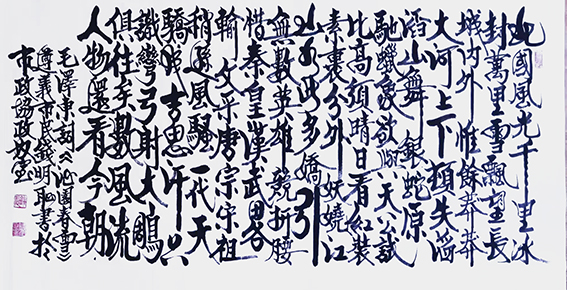 北國風光千里冰
封萬里雪飄望長
城內外惟餘莽莽
大河上下頓失滔
滔山舞銀蛇原
馳蠟象欲與天公試
比高須晴日看紅裝
素裹分外妖嬈江
山如此多嬌引
無數英雄競折腰
惜秦皇漢武畧
輸文采唐宗宋祖
稍遜風騷一代天
驕成吉思汗只
識彎弓射大鵰
俱往矣數風流
人物還看今朝
毛澤東詞《沁園春雪》
遵義市民錢明書於
市政協